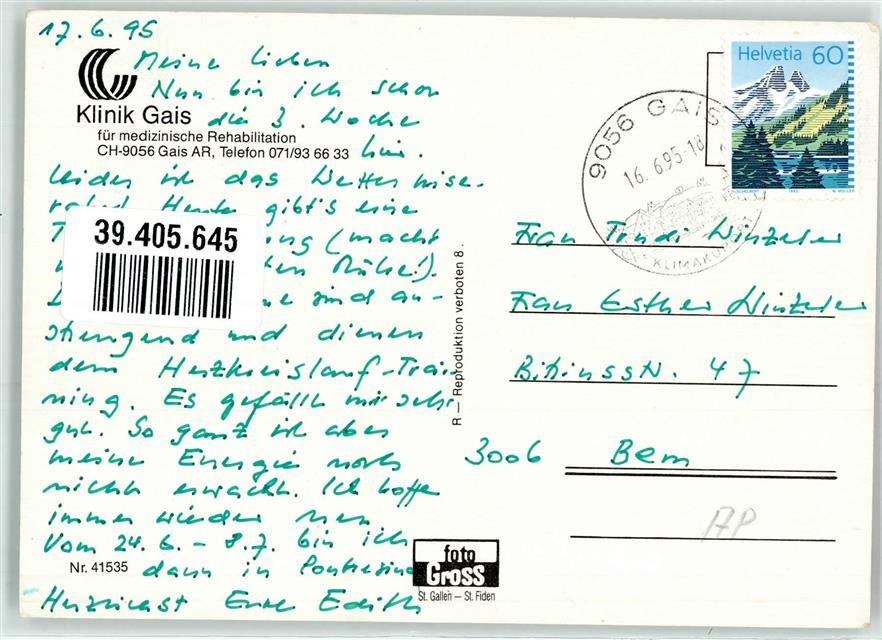 17.6.95
Meine Lieben
Nun bin ich schon
die 3. Woche
hier.
Klinik Gais
für medizinische Rehabilitation
CH-9056 Gais AR, Telefon 071/93 66 33
Leider ist das Wetter mise-
rabel. Heute gibt's eine
(macht
Mühe!).
sind an-
strengend und dienen
dem Herzkreislauf-Trai-
ning. Es gefällt mir sehr
gut. So ganz ist aber
meine Energie noch
nicht erwacht. Ich hoffe
immer wieder neu
Vom 24.6. - 8.7. bin ich
dann in Pontresina
Herzlichst Eure Edith
39.405.645
Nr. 41535
R — Reproduktion verboten 8.
foto
Gross
St. Gallen — St. Fiden
Helvetia 60
9056 GAIS
16.6.95-18
Frau Trudi Winzeler
Frau Esther Winzeler
Bitziusstr. 47
3006 Bern
AP